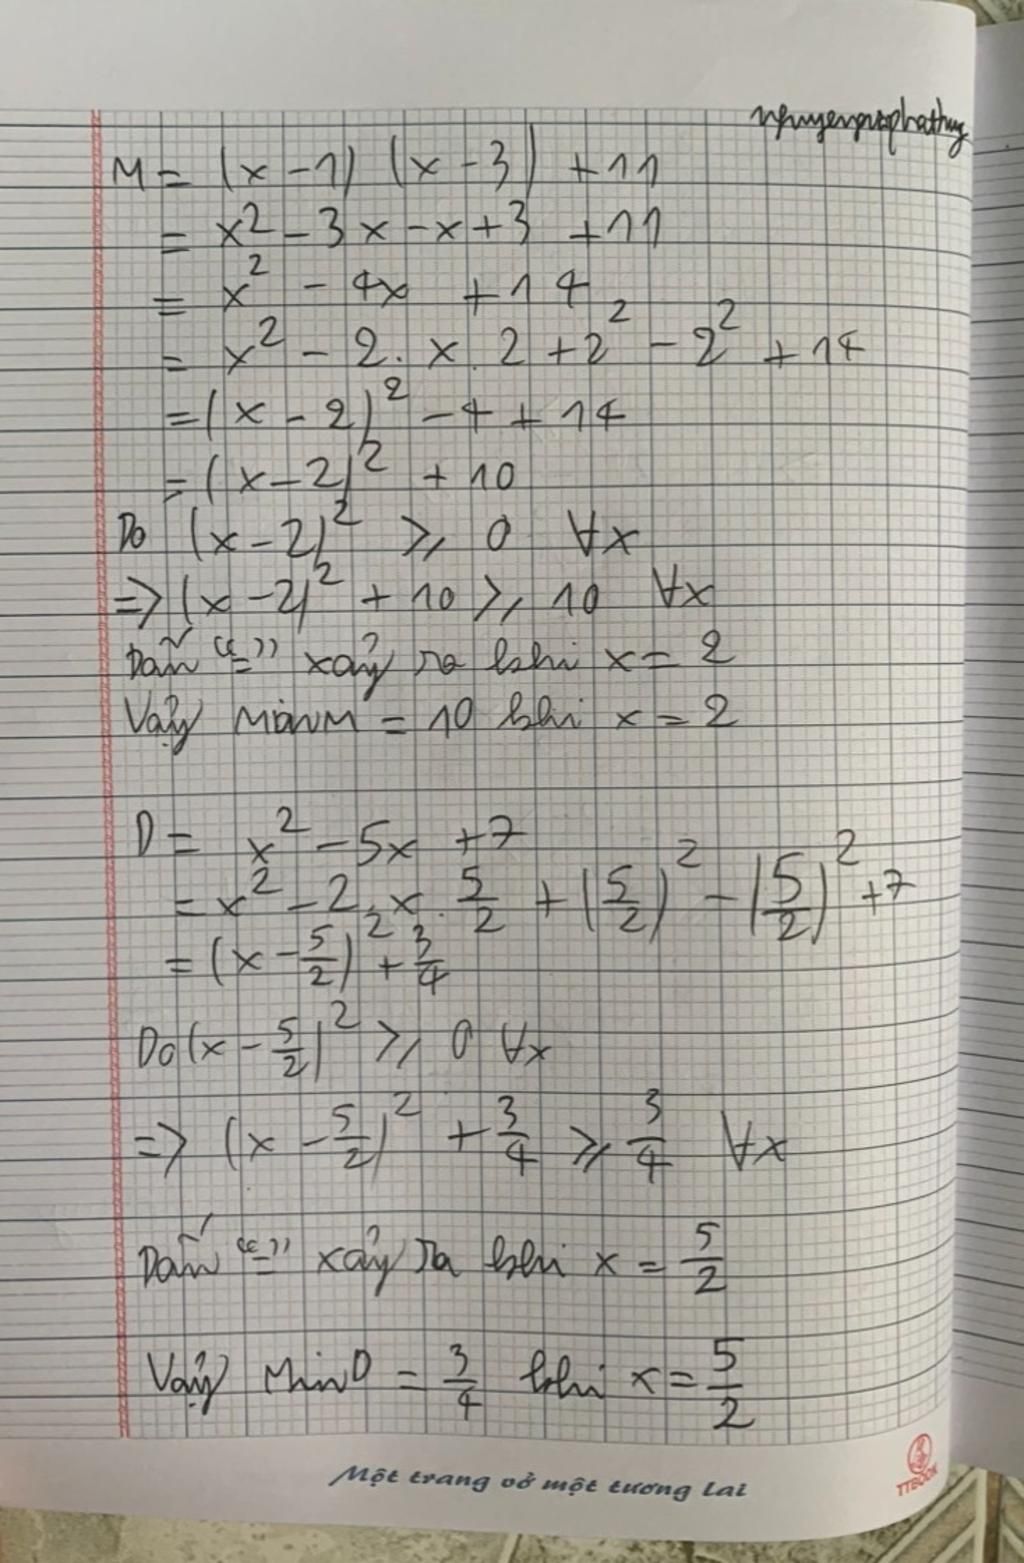 M = (x - 1) (x - 3) + 11
= x² - 3x - x + 3 + 11
= x² - 4x + 14
= x² - 2. x. 2 + 2² - 2² + 14
= (x - 2)² - 4 + 14
= (x - 2)² + 10
Do (x - 2)² ⩾ 0 ∀x
=> (x - 2)² + 10 ⩾ 10 ∀x
Dấu "=" xảy ra khi x = 2
Vậy MinM = 10 khi x = 2
D = x² - 5x + 7
= x² - 2. x. 5/2 + (5/2)² - (5/2)² + 7
= (x - 5/2)² + 3/4
Do (x - 5/2)² ⩾ 0 ∀x
=> (x - 5/2)² + 3/4 ⩾ 3/4 ∀x
Dấu "=" xảy ra khi x = 5/2
Vậy MinD = 3/4 khi x = 5/2
Một trang vở một tương lai
TTBOOK